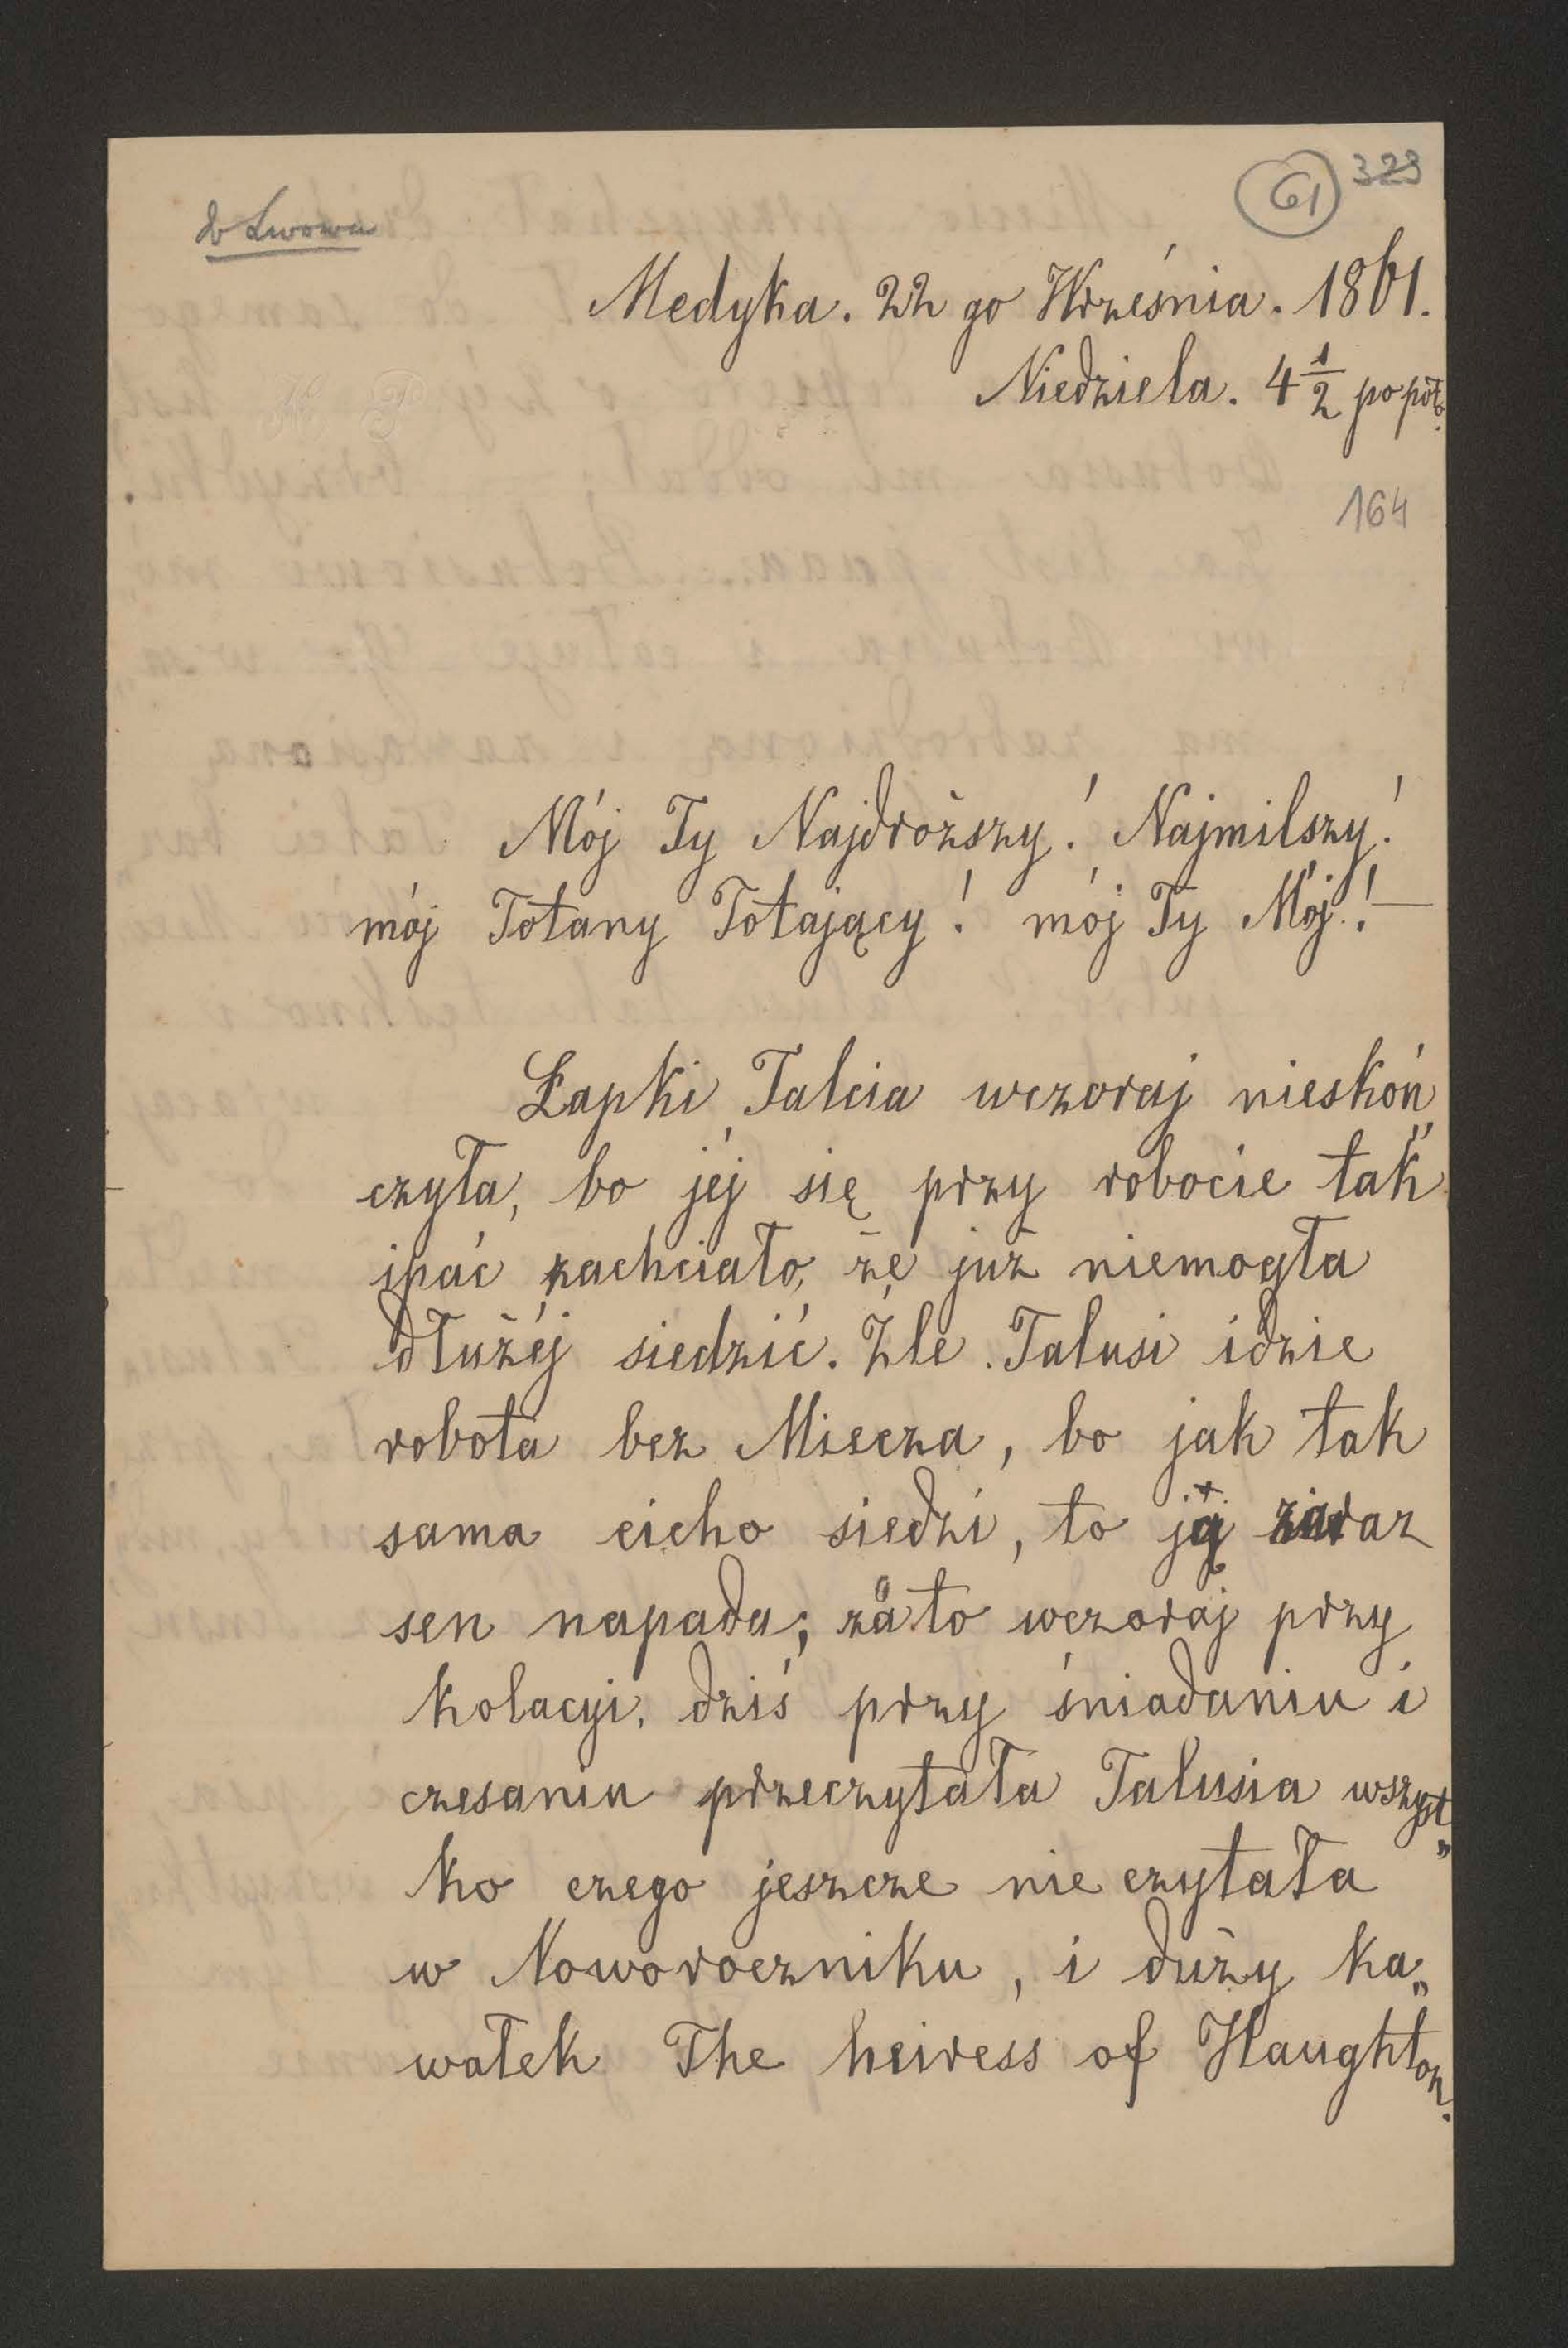 61 323
do Lwowa
Medyka. 22 go Września. 1861.
Niedziela. 4 1/2 po poł.
164
Mój Ty Najdroższy! Najmilszy!
mój Totany Totający! mój Ty Mój! —
Łapki Talcia wczoraj nieskoń„
czyła, bo jéj się przy robocie tak
ipać zachciało, że już niemogła
dłużéj siedzić. Źle Talusi idzie
robota bez Miecza, bo jak tak
sama cicho siedzi, to ją zaraz
sen napada; zato wczoraj przy
kolacyi, dziś przy śniadaniu i
czesaniu przeczytała Talusia wszyst„
ko czego jeszcze nie czytała
w Noworoczniku, i duży ka„
wałek The heiress of Haughton.